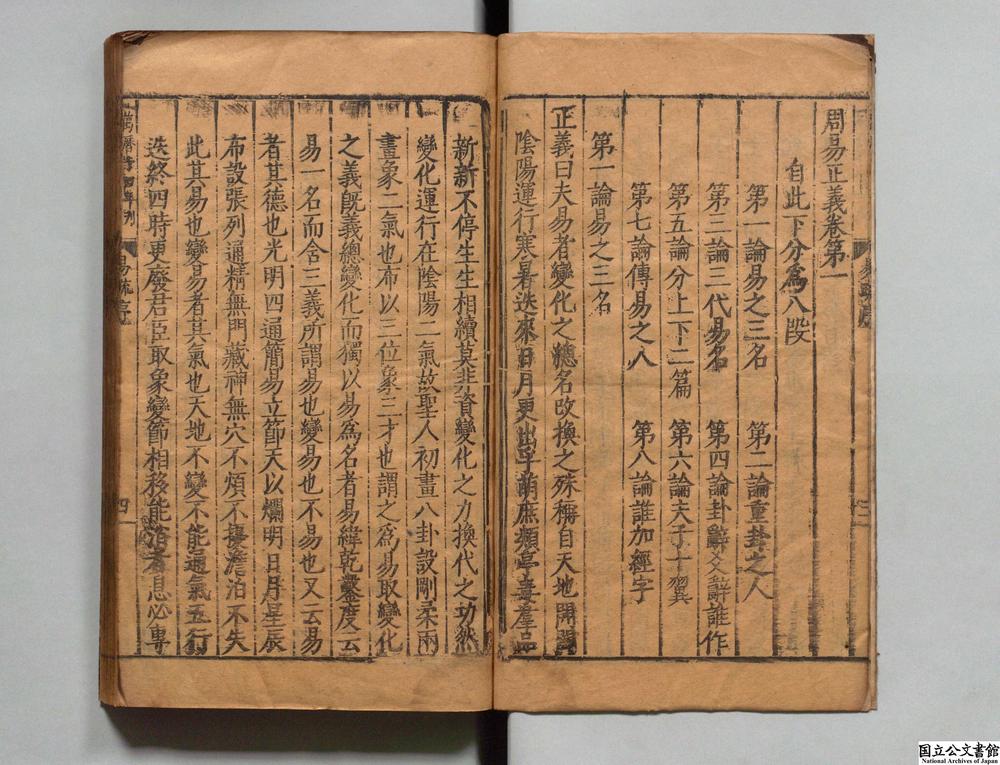 周易正義卷第一
自此下分爲八段
第一論易之三名　第二論重卦之人
第三論三代易名　第四論卦辭爻辭誰作
第五論分上下二篇　第六論夫子十翼
第七論傳易之人　第八論誰加經字
第一論易之三名
正義曰夫易者變化之緫名改換之殊稱自天地開闢
陰陽運行寒暑迭來日月更出孚萌庶類亭毒羣品
新新不停生生相續莫非資變化之力換代之功然
變化運行在陰陽二氣故聖人初畫八卦設剛柔兩
畫象二氣也布以三位象三才也謂之爲易取變化
之義旣義總變化而獨以易爲名者易緯乾鑿度云
易一名而含三義所謂易也變易也不易也又云易
者其德也光明四通簡易立節天以爛明日月星辰
布設張列通精無門藏神無穴不煩不擾澹泊不失
此其易也變易者其氣也天地不變不能通氣五行
迭終四時更廢君臣取象變節相移能消者息必專
易疏序
四
国立公文書館
National Archives of Japan